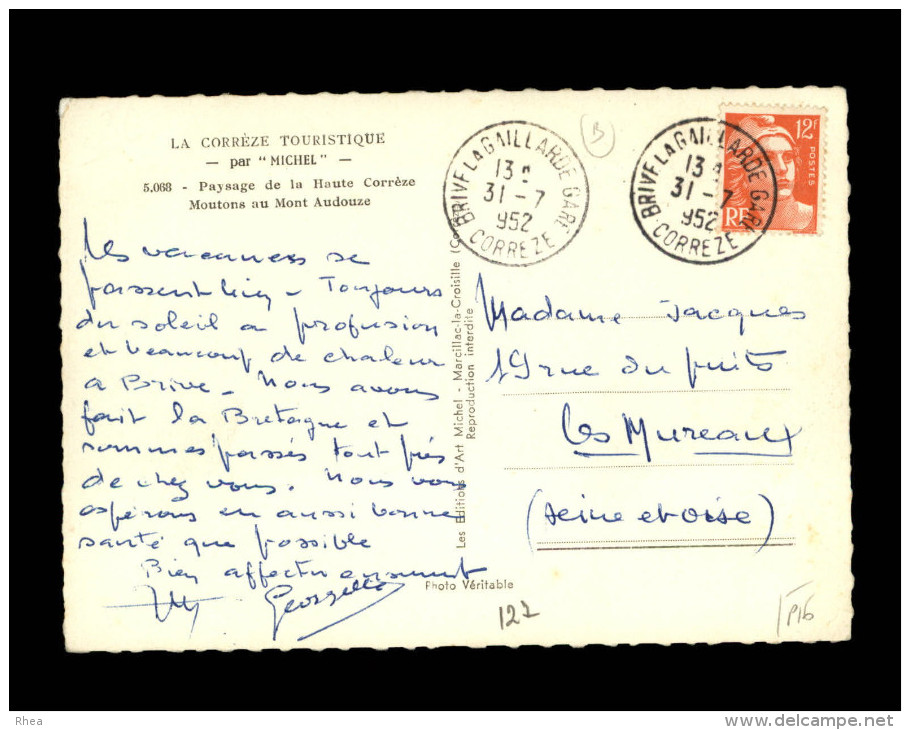 LA CORRÈZE TOURISTIQUE
— par "MICHEL" —
5.068 - Paysage de la Haute Corrèze
Moutons au Mont Audouze
Les vacances se
passent bien - Toujours
du soleil a profusion
et beaucoup de chaleur
a Brive - Nous avons
fait la Bretagne et
sommes passés tout près
de chez vous. Nous vous
espérons en aussi bonne
santé que possible
Bien affectueusement
Georgette
Les Editions d'Art Michel - Marcillac-la-Croisille
Reproduction interdite
Photo Véritable
BRIVE LA GAILLARDE GARE
13
31-7
952
CORREZE
BRIVE LA GAILLARDE GARE
13
31-7
952
CORREZE
12F
POSTES
RF
B
Madame Jacques
19 rue du puits
Les Mureaux
(Seine et Oise)
122
P16
Rhea
delcampe.net